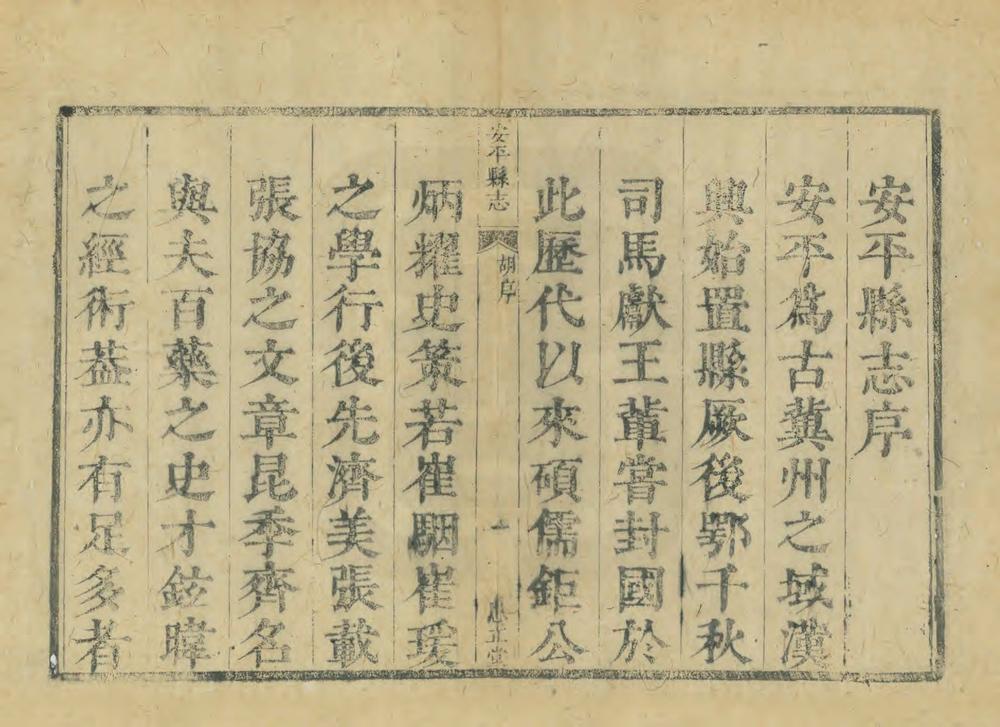 安平縣志序
安平爲古冀州之域漢
興始置縣厥後鄂千秋
司馬獻王軰嘗封國於
此歷代以來碩儒鉅公
安平縣志
胡序
一
忠正堂
炳耀史策若崔駰崔瑗
之學行後先濟美張載
張協之文章昆季齊名
與夫百藥之史才鉉暐
之經術葢亦有足多者